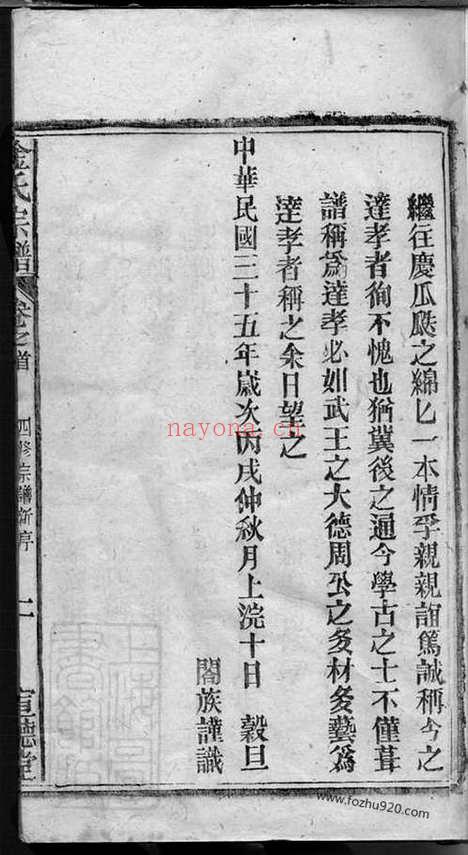 繼往慶瓜瓞之綿匕一本情孚親親誼篤誠稱今之
達孝者徇不愧也猶冀後之通今學古之士不僅葺
譜稱為達孝必如武王之大德周公之多材多藝為
達孝者稱之余日望之
中華民國三十五年歲次丙戌仲秋月上浣十日　穀旦
闔族謹識
金氏宗譜
卷之首
四修宗譜新序
二
宣德堂
nayona.cn
www.fozhu920.com